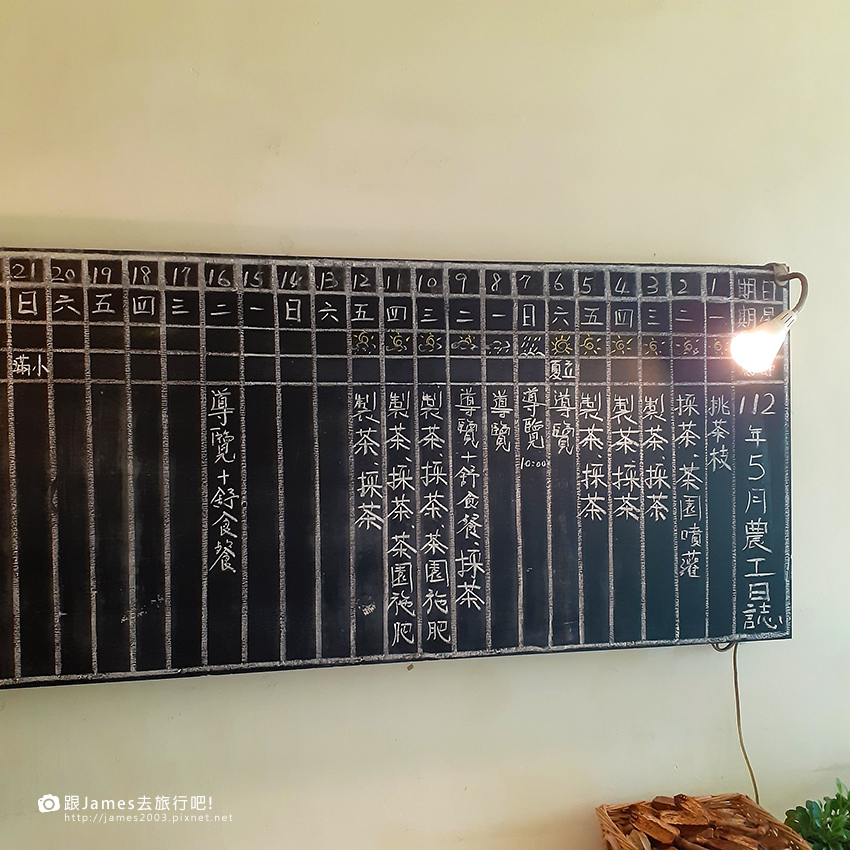 日期
1
2
3
4
5
6
7
8
9
10
11
12
13
14
15
16
17
18
19
20
21
星期
一
二
三
四
五
六
日
一
二
三
四
五
六
日
一
二
三
四
五
六
日
立夏
小滿
112年5月農工日誌
挑茶枝
採茶、茶園噴灌
製茶、採茶
製茶、採茶
製茶、採茶
導覽
導覽
10:00
導覽
導覽+舒食餐、採茶
製茶、採茶、茶園施肥
製茶、採茶、茶園施肥
製茶、採茶
導覽+舒食餐
跟James去旅行吧!
http://james2003.pixnet.net